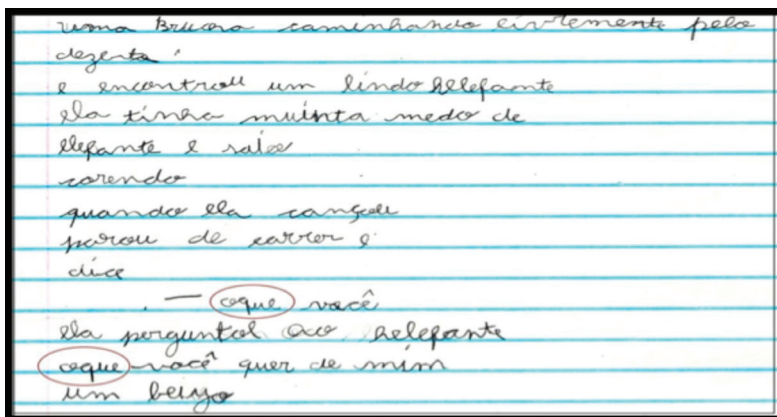 uma Bruxa caminhando livremente pelo
dezerto
e encontrou um lindo helefante
ela tinha muinta medo de
elefante e saio
corendo
quando ela cançou
parou de correr e
dice
— oque você
ela perguntol ao helefante
oque você quer de mim
um beiyo